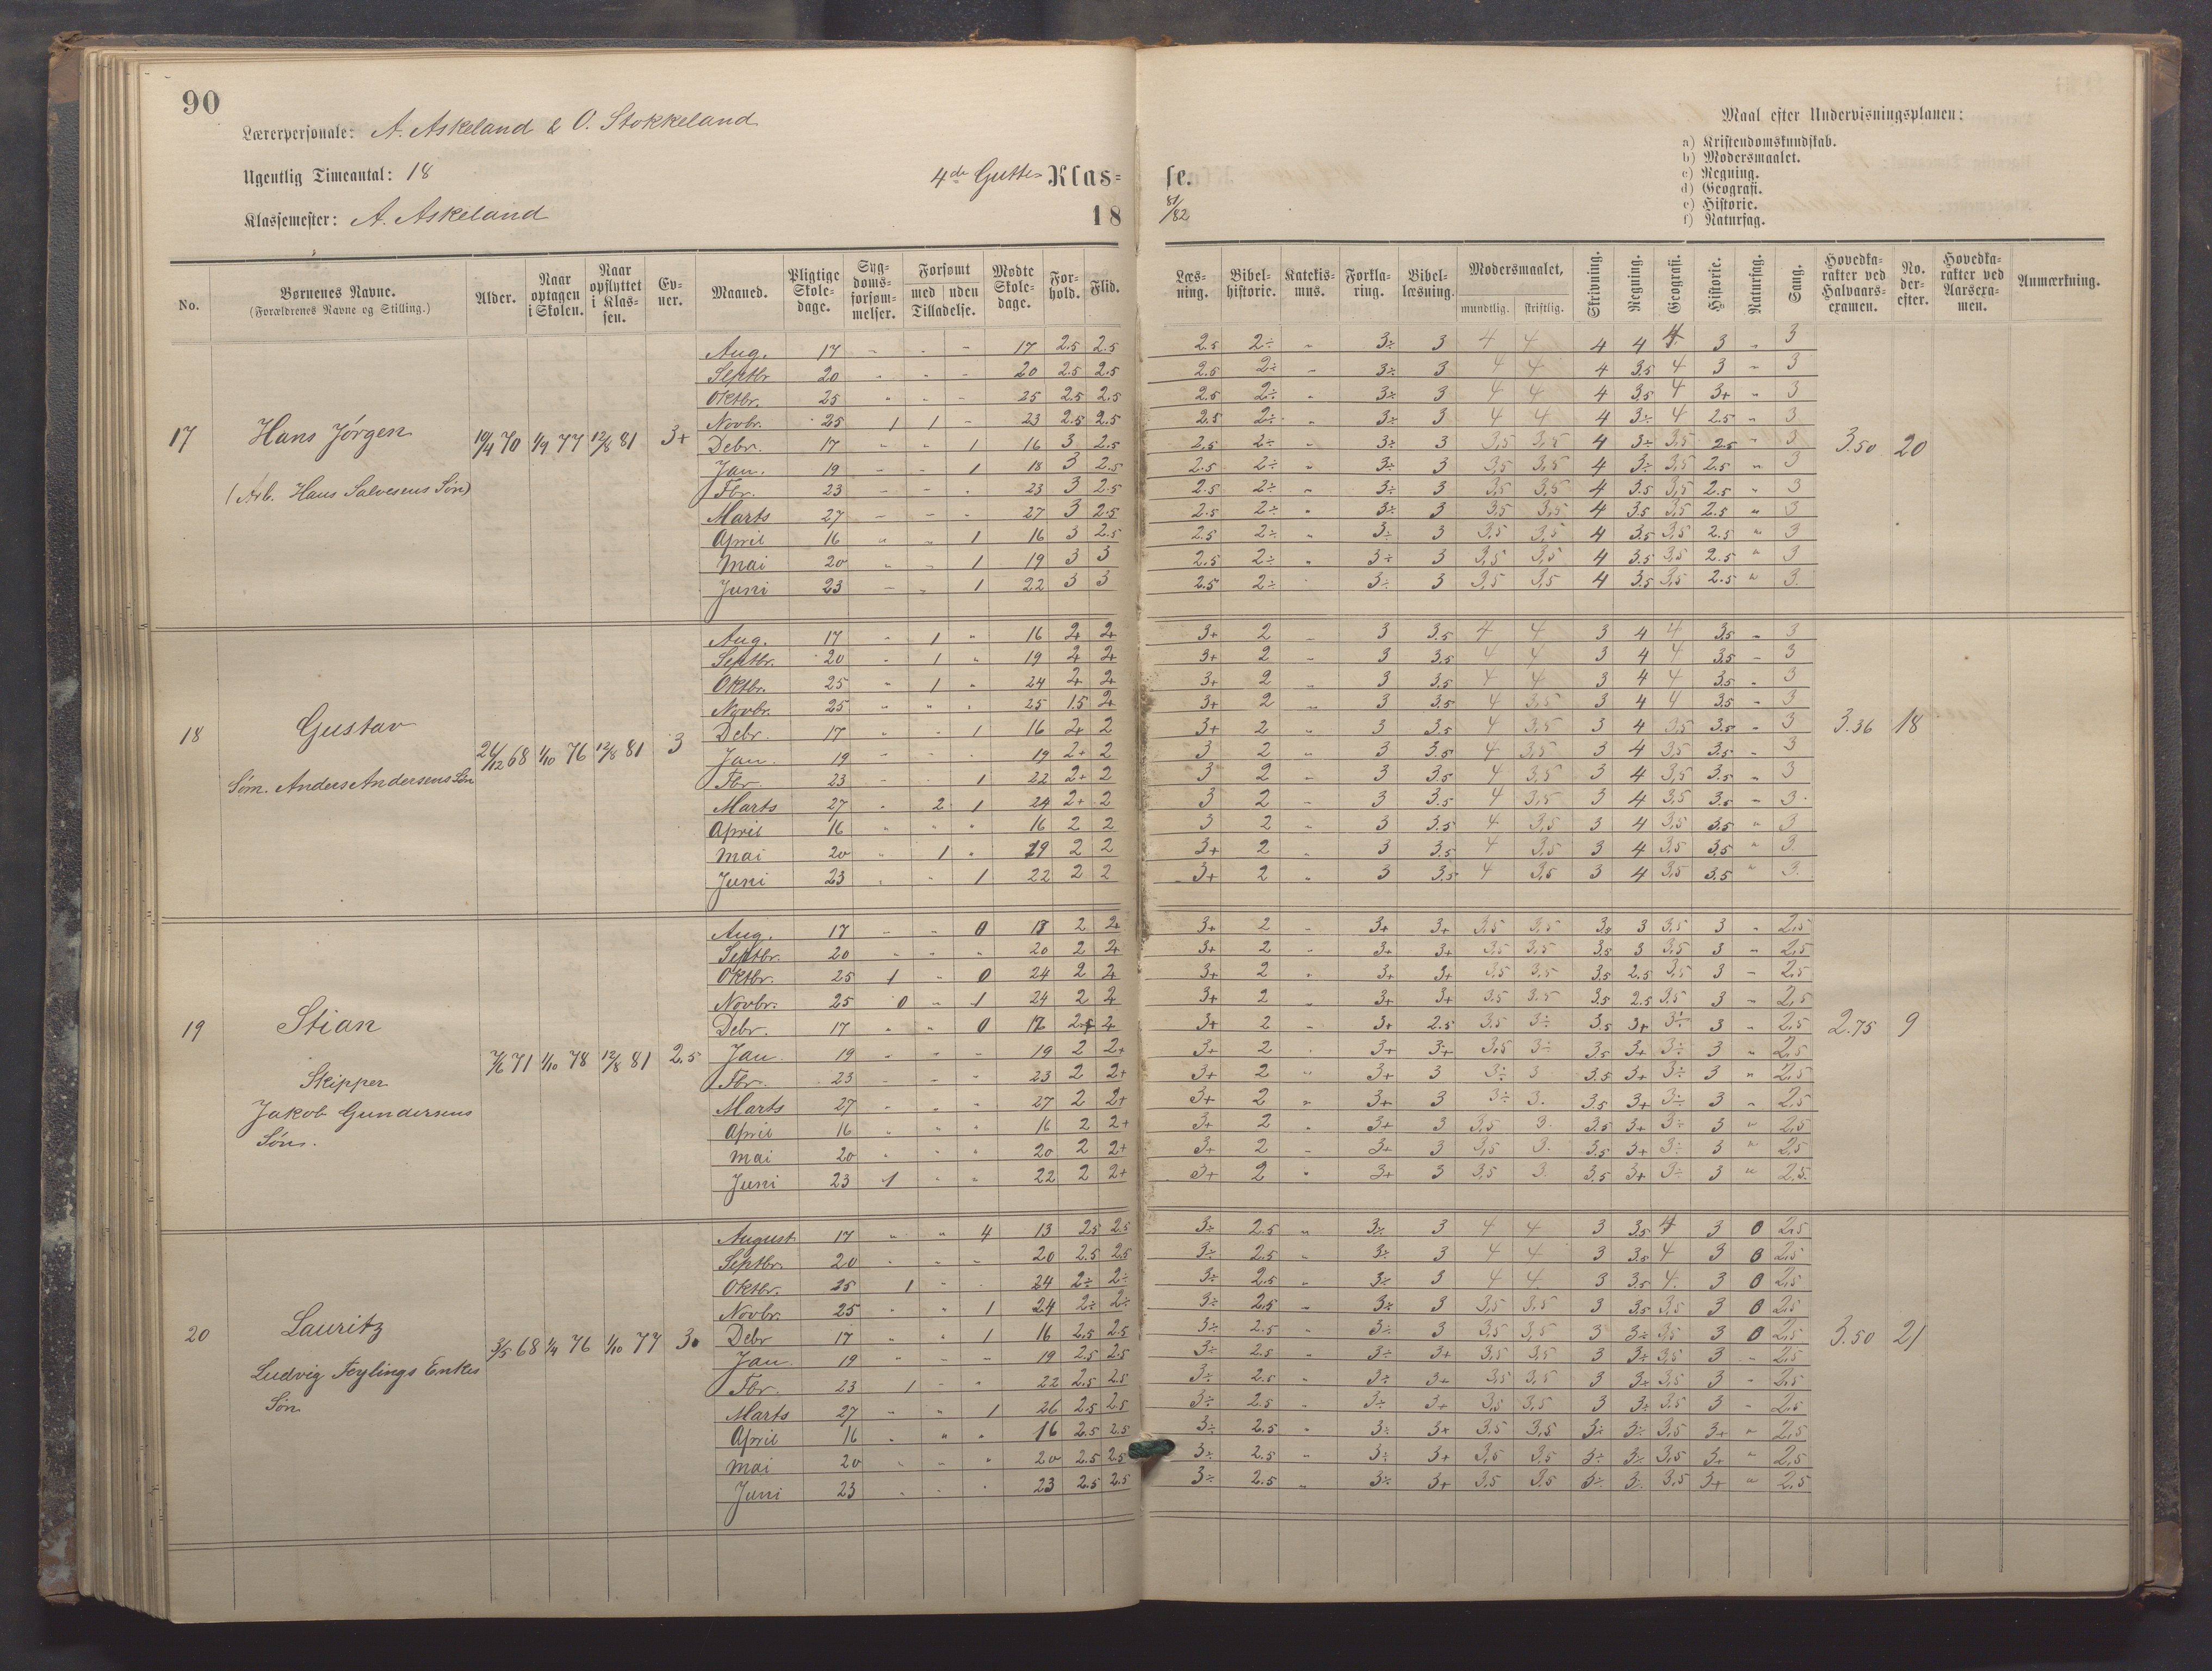 90
Lærerpersonale: A. Askeland & O. Stokkeland
Ugentlig Timeantal: 18
4de Gutte- Klas-
Klassemester: A. Askeland
18
No.
Børnenes Navne.
(Forældrenes Navne og Stilling.)
Alder.
Naar optagen i Skolen.
Naar opflyttet i Klas- sen.
Ev- ner.
Maaned.
Pligtige Skole- dage.
Syg- doms- forsøm- melser.
Forsømt med uden Tilladelse.
Mødte Skole- dage.
For- hold.
Flid.
17
Hans Jørgen
(Arb. Hans Salvesens Søn)
19/4 70 1/9 77 12/8 81 3+
Aug. 17 " " " 17 2.5 2.5
Septbr 20 " " " 20 2.5 2.5
Oktbr. 25 " " " 25 2.5 2.5
Novbr. 25 1 1 " 23 2.5 2.5
Debr. 17 " " 1 16 3 2.5
Jan. 19 " " 1 18 3 2.5
Fbr. 23 " " " 23 3 2.5
Marts 27 " " " 27 3 2.5
April 16 " " 1 16 3 2.5
Mai 20 " " 1 19 3 3
Juni 23 " " 1 22 3 3
18
Gustav
Søm. Anders Andersens Søn
21/12 68 1/10 76 12/8 81 3
Aug. 17 " 1 " 16 2+ 2+
Septbr. 20 " 1 " 19 2+ 2+
Oktbr. 25 " 1 " 24 2+ 2+
Novbr. 25 " " " 25 1.5 2+
Debr. 17 " " 1 16 2+ 2
Jan. 19 " " " 19 2+ 2
Fbr. 23 " " 1 22 2+ 2
Marts 27 " 2 1 24 2+ 2
April 16 " " " 16 2 2
Mai 20 " 1 " 19 2 2
Juni 23 " " 1 22 2 2
19
Stian
Skipper
Jakob Gundersens
Søn.
7/6 71 1/10 78 12/8 81 2.5
Aug. 17 " " 0 17 2 2+
Septbr. 20 " " " 20 2 2+
Oktbr. 25 1 " 0 24 2 2+
Novbr. 25 0 " 1 24 2 2+
Debr. 17 " " 0 17 2+
Jan. 19 " " " 19 2 2+
Fbr. 23 " " " 23 2 2+
Marts 27 " " " 27 2 2+
April 16 " " " 16 2 2+
Mai 20 " " " 20 2 2+
Juni 23 1 " " 22 2 2+
20
Lauritz
Ludvig Feylings Enkes
Søn
3/5 68 1/4 76 1/10 77 3
August 17 " " 4 13 2.5 2.5
Septbr. 20 " " " 20 2.5 2.5
Oktbr. 25 1 " " 24 2÷ 2÷
Novbr. 25 " " 1 24 2÷ 2÷
Debr 17 " " 1 16 2.5 2.5
Jan. 19 " " " 19 2.5 2.5
Fbr. 23 1 " " 22 2.5 2.5
Marts 27 " " 1 26 2.5 2.5
April 16 " " " 16 2.5 2.5
Mai 20 " " " 20 2.5 2.5
Juni 23 " " " 23 2.5 2.5
se.
81/82
Maal efter Undervisningsplanen:
a) Kristendomskundskab.
b) Modersmaalet.
c) Regning.
d) Geografi.
e) Historie.
f) Naturfag.
Læs- ning.
Bibel- historie.
Katekis- mus.
Forkla- ring.
Bibel- læsning.
Modersmaalet, mundtlig. skriftlig.
Skrivning.
Regning.
Geografi.
Historie.
Naturfag.
Sang.
Hovedka- rakter ved Halvaars- examen.
No. der- efter.
Hovedka- rakter ved Aarsexa- men.
Anmærkning.
2.5 2÷ " 3÷ 3 4 4 4 4 4 3 " 3
2.5 2÷ " 3÷ 3 4 4 4 3.5 4 3 " 3
2.5 2÷ " 3÷ 3 4 4 4 3.5 4 3+ " 3
2.5 2÷ " 3÷ 3 4 4 4 3÷ 4 2.5 " 3
2.5 2÷ " 3÷ 3 3,5 3,5 4 3÷ 3,5 2.5 " 3
2.5 2÷ " 3÷ 3 3,5 3,5 4 3÷ 3,5 2.5 " 3
2.5 2÷ " 3÷ 3 3,5 3,5 4 3.5 3,5 2.5 " 3
2.5 2÷ " 3÷ 3 3,5 3,5 4 3.5 3,5 2.5 " 3
2.5 2÷ " 3÷ 3 3,5 3,5 4 3.5 3,5 2.5 " 3
2.5 2÷ " 3÷ 3 3,5 3,5 4 3.5 3,5 2.5 " 3
2.5 2÷ " 3÷ 3 3,5 3,5 4 3.5 3,5 2.5 " 3
3.50 20
3+ 2 " 3 3.5 4 4 3 4 4 3.5 " 3
3+ 2 " 3 3.5 4 4 3 4 4 3.5 " 3
3+ 2 " 3 3.5 4 4 3 4 4 3.5 " 3
3+ 2 " 3 3.5 4 3,5 3 4 4 3.5 " 3
3+ 2 " 3 3.5 4 3,5 3 4 3,5 3.5 " 3
3 2 " 3 3.5 4 3,5 3 4 3,5 3.5 " 3
3 2 " 3 3.5 4 3,5 3 4 3,5 3.5 " 3
3 2 " 3 3.5 4 3,5 3 4 3,5 3.5 " 3
3 2 " 3 3.5 4 3,5 3 4 3,5 3.5 " 3
3+ 2 " 3 3.5 4 3,5 3 4 3,5 3.5 " 3
3+ 2 " 3 3.5 4 3,5 3 4 3,5 3.5 " 3
3.36 18
3+ 2 " 3+ 3+ 3,5 3,5 3.5 3 3,5 3 " 2,5
3+ 2 " 3+ 3+ 3,5 3,5 3.5 3 3,5 3 " 2,5
3+ 2 " 3+ 3+ 3,5 3,5 3.5 2.5 3,5 3 " 2,5
3+ 2 " 3+ 3+ 3,5 3,5 3.5 2.5 3,5 3 " 2,5
3+ 2 " 3+ 2.5 3,5 3÷ 3.5 3+ 3÷ 3 " 2,5
3+ 2 " 3+ 3+ 3,5 3÷ 3.5 3+ 3÷ 3 " 2,5
3+ 2 " 3+ 3 3÷ 3 3.5 3+ 3÷ 3 " 2,5
3+ 2 " 3+ 3 3÷ 3. 3.5 3+ 3÷ 3 " 2,5
3+ 2 " 3+ 3 3,5 3. 3.5 3+ 3÷ 3 " 2,5
3+ 2 " 3+ 3 3,5 3. 3.5 3+ 3÷ 3 " 2,5
3+ 2 " 3+ 3 3,5 3 3.5 3+ 3÷ 3 " 2,5
2.75 9
3÷ 2.5 " 3÷ 3 4 4 3 3.5 4 3 0 2,5
3÷ 2.5 " 3÷ 3 4 4 3 3.5 4 3 0 2,5
3÷ 2.5 " 3÷ 3 4 4 3 3.5 4 3 0 2,5
3÷ 2.5 " 3÷ 3 3,5 3,5 3 3.5 3,5 3 0 2,5
3÷ 2.5 " 3÷ 3 3,5 3,5 3 3÷ 3,5 3 0 2,5
3÷ 2.5 " 3÷ 3+ 3,5 3,5 3 3÷ 3,5 3 " 2,5
3÷ 2.5 " 3÷ 3+ 3,5 3,5 3 3+ 3,5 3 " 2,5
3÷ 2.5 " 3÷ 3+ 3,5 3,5 3 3÷ 3,5 3 " 2,5
3÷ 2.5 " 3÷ 3+ 3,5 3,5 3÷ 3÷ 3,5 3+ " 2,5
3÷ 2.5 " 3÷ 3+ 3,5 3,5 3÷ 3÷ 3,5 3+ " 2,5
3÷ 2.5 " 3÷ 3+ 3,5 3,5 3÷ 3÷ 3,5 3+ " 2,5
3.50 21